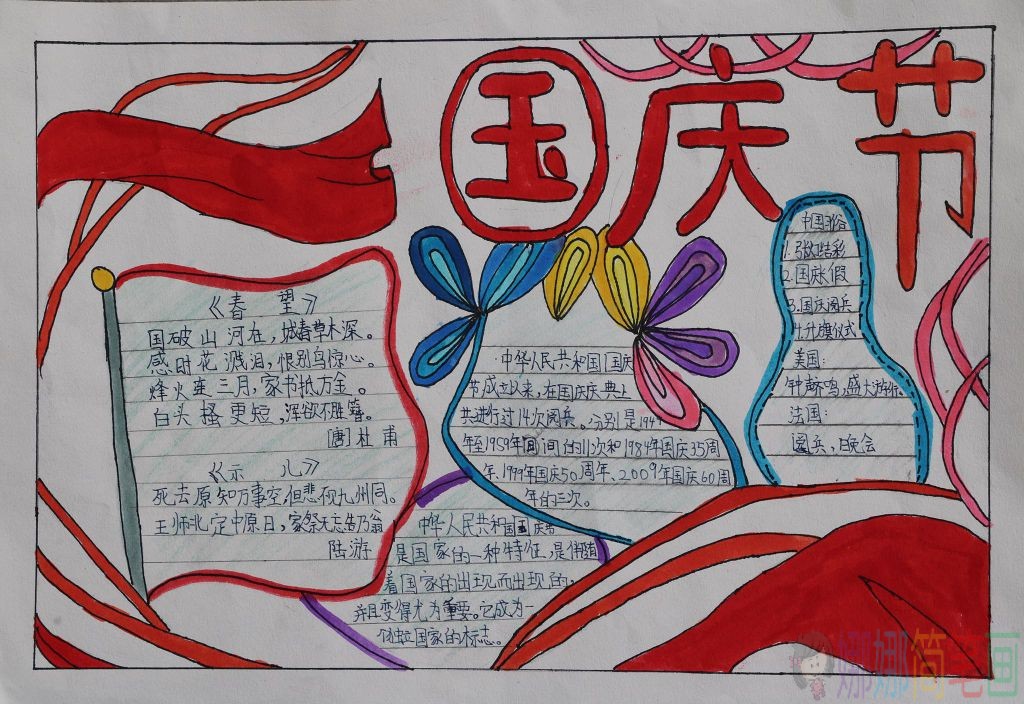 国庆节
《春 望》
国破山河在，城春草木深。
感时花溅泪，恨别鸟惊心。
烽火连三月，家书抵万金。
白头搔更短，浑欲不胜簪。
[唐]杜甫
《示 儿》
死去原知万事空但悲不见九州同。
王师北定中原日，家祭无忘告乃翁
陆游
·中华人民共和国国庆
节成立以来，在国庆庆典上
共进行过14次阅兵。分别是1949
年至1959年间的11次和1984年国庆35周
年、1999年国庆50周年、2009年国庆60周
年的三次。
中华人民共和国国庆节
是国家的一种特征，是伴随
着国家的出现而出现的，
并且变得尤为重要。它成为一
个独立国家的标志。
中国习俗
1.张灯结彩
2.国庆假
3.国庆阅兵
4.升旗仪式
美国：
钟声鸣，盛大游行。
法国：
阅兵，晚会
娜娜简笔画